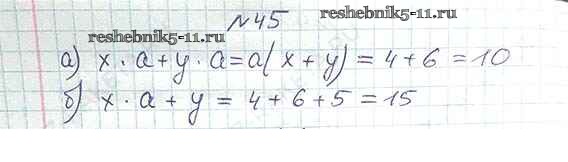 №45
reshebnik5-11.ru
reshebnik5-11.ru
а) x · a + y · a = a( x + y) = 4 + 6 = 10
б) x · a + y = 4 + 6 + 5 = 15